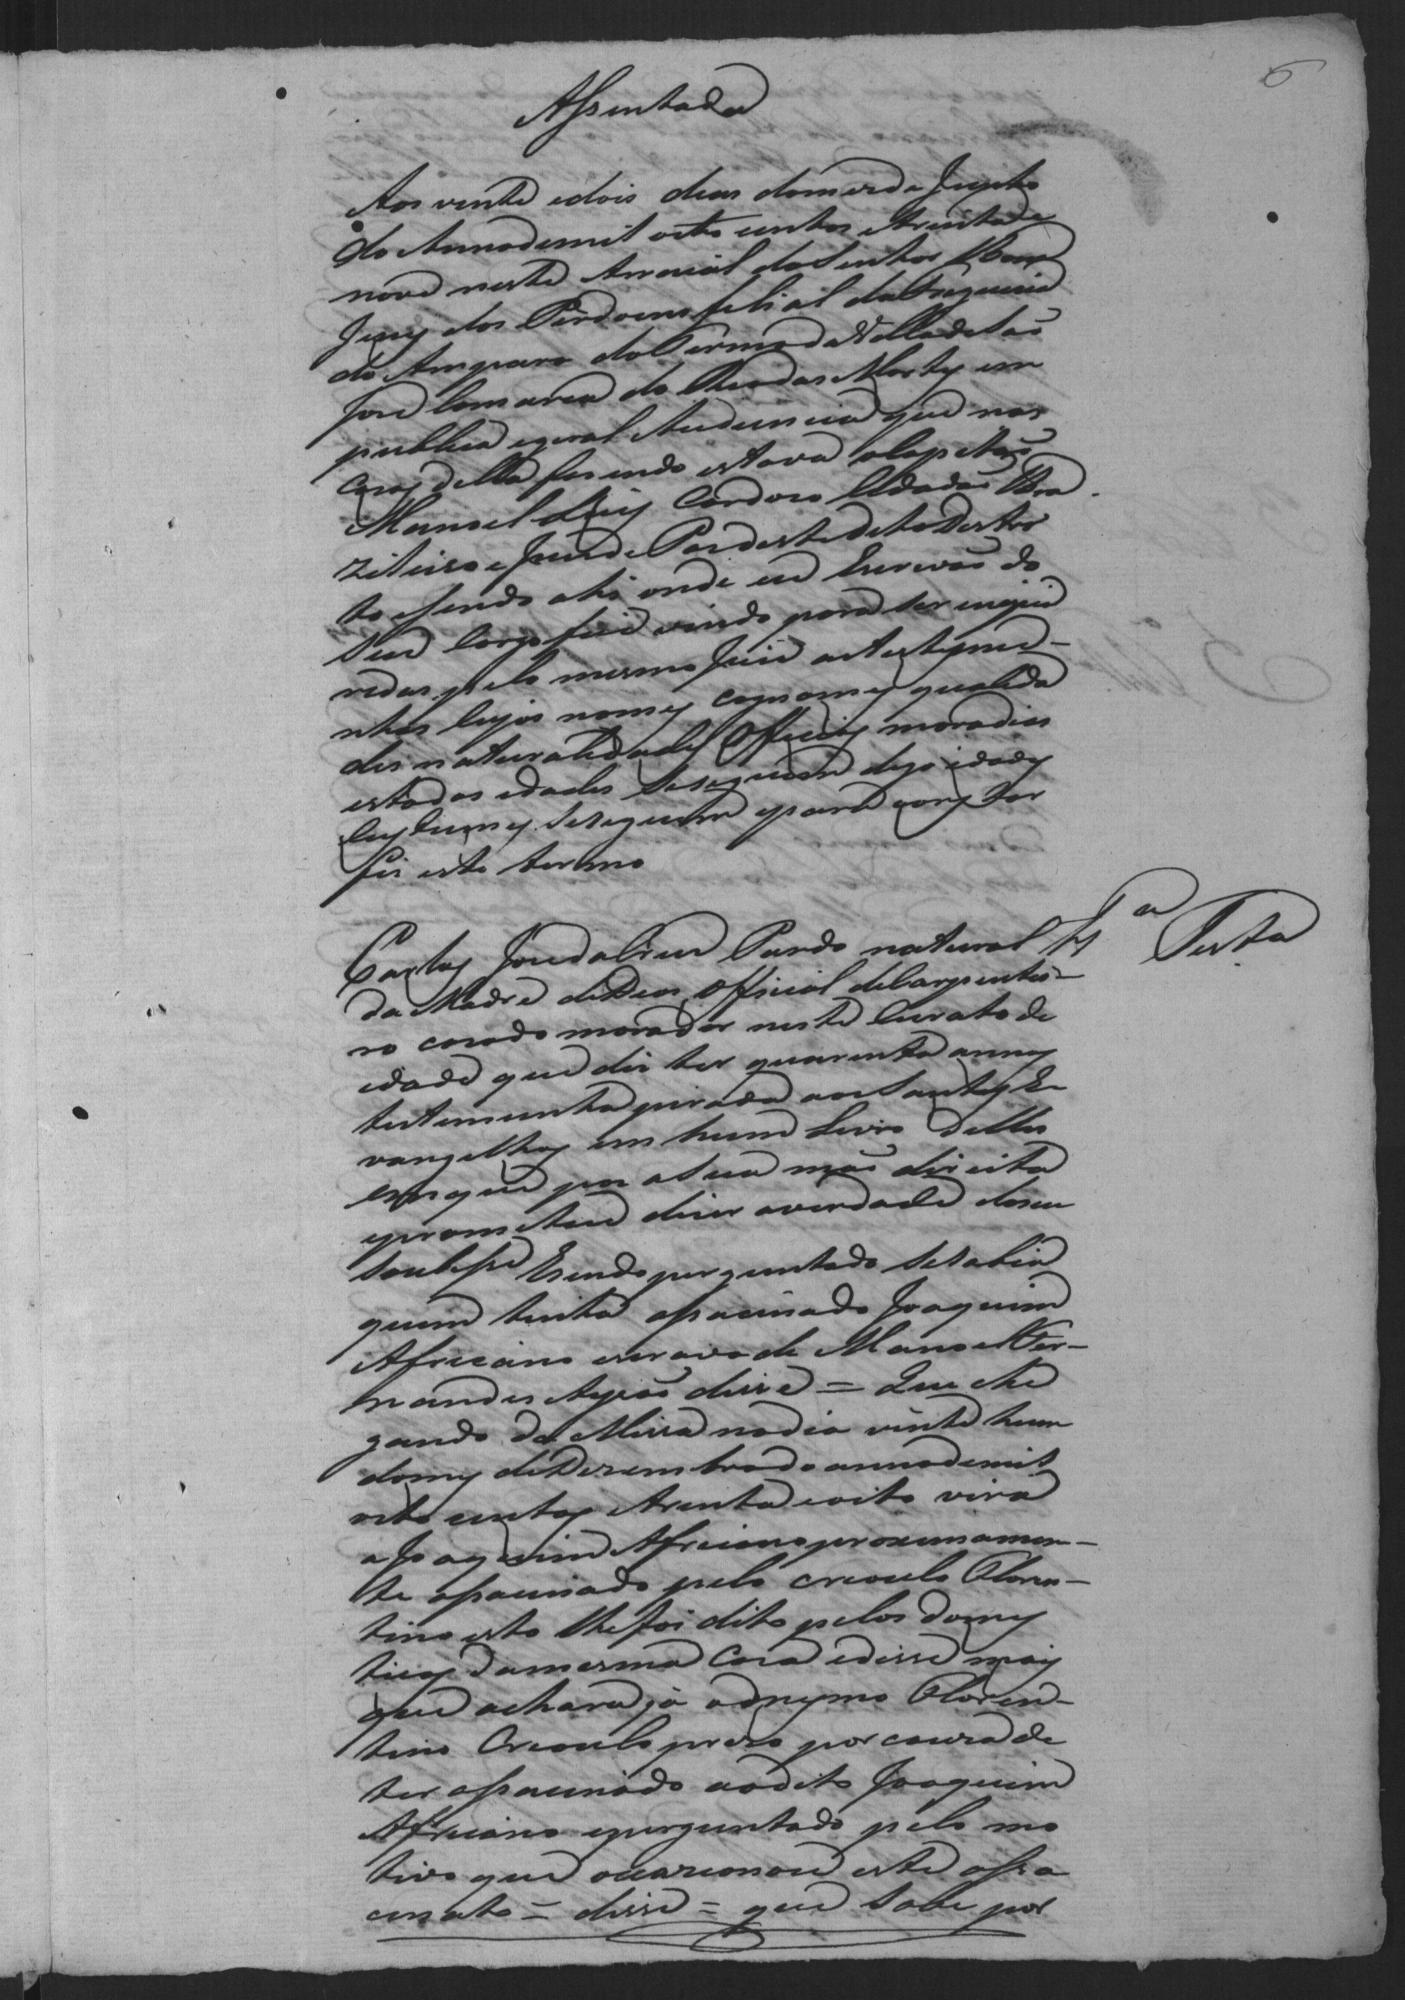 6
Assentada
Aos vinte edois dias domez de Junho
do Annodemil oito centos etrinta e
nove neste Arraial doSenhor Bom
Jesuz dos Perdoens filial daFreguezia
do Amparo doTermo daVilla deSaõ
José Comarca do Rio das Mortez em
publica egeral Audiencia que nas
cazaz della fazendo estava oCapitaõ
Manoel Luiz Cardozo Cidadaõ Bra
zileiro e Juiz de Paz deste dito Destri
to esendo ahi onde eu Escrivaõ do
Seu Cargo fui vindo para ser inqui
ridas pelo mesmo Juiz as testemu-
nhas Cujos nomez cognomez qualida
des naturalidades Officioz moradias
estados edades seseguem digo idadez
Custumez seseguem epara constar
fiz este termo
Carlos Joze da Silva Pardo natural 1ª Testa
da Madre deDeos Official deCarpintei-
ro cazado morador neste Curato de
edade que diz ter quarenta annoz
testemunha jurada aos Santoz E-
vangelhoz em hum Livro delles
emque poz aSua maõ direita
eprometeu dizer averdade doseu
soubesse Esendo perguntado seSabia
quem tinha assacinado Joaquim
Africano escravo de Manoel Fer-
nandes Ayraõ disse = Que che
gando da Missa nodia vinte hum
domez deDezembro do anno demil
oito centoz etrinta eoito vira
a Joaquim Africano proximamen-
te assacinado pelo creoulo Floren-
tino isto lhe foi dito pelos domez
ticoz damesma Caza edisse maiz
que achara já o mesmo Floren-
tino Creoulo prezo por couza de
ter assacinado aodito Joaquim
Africano eperguntado pelo mo
tivo que ocazionou este assa
cinato = disse = que Sabe por